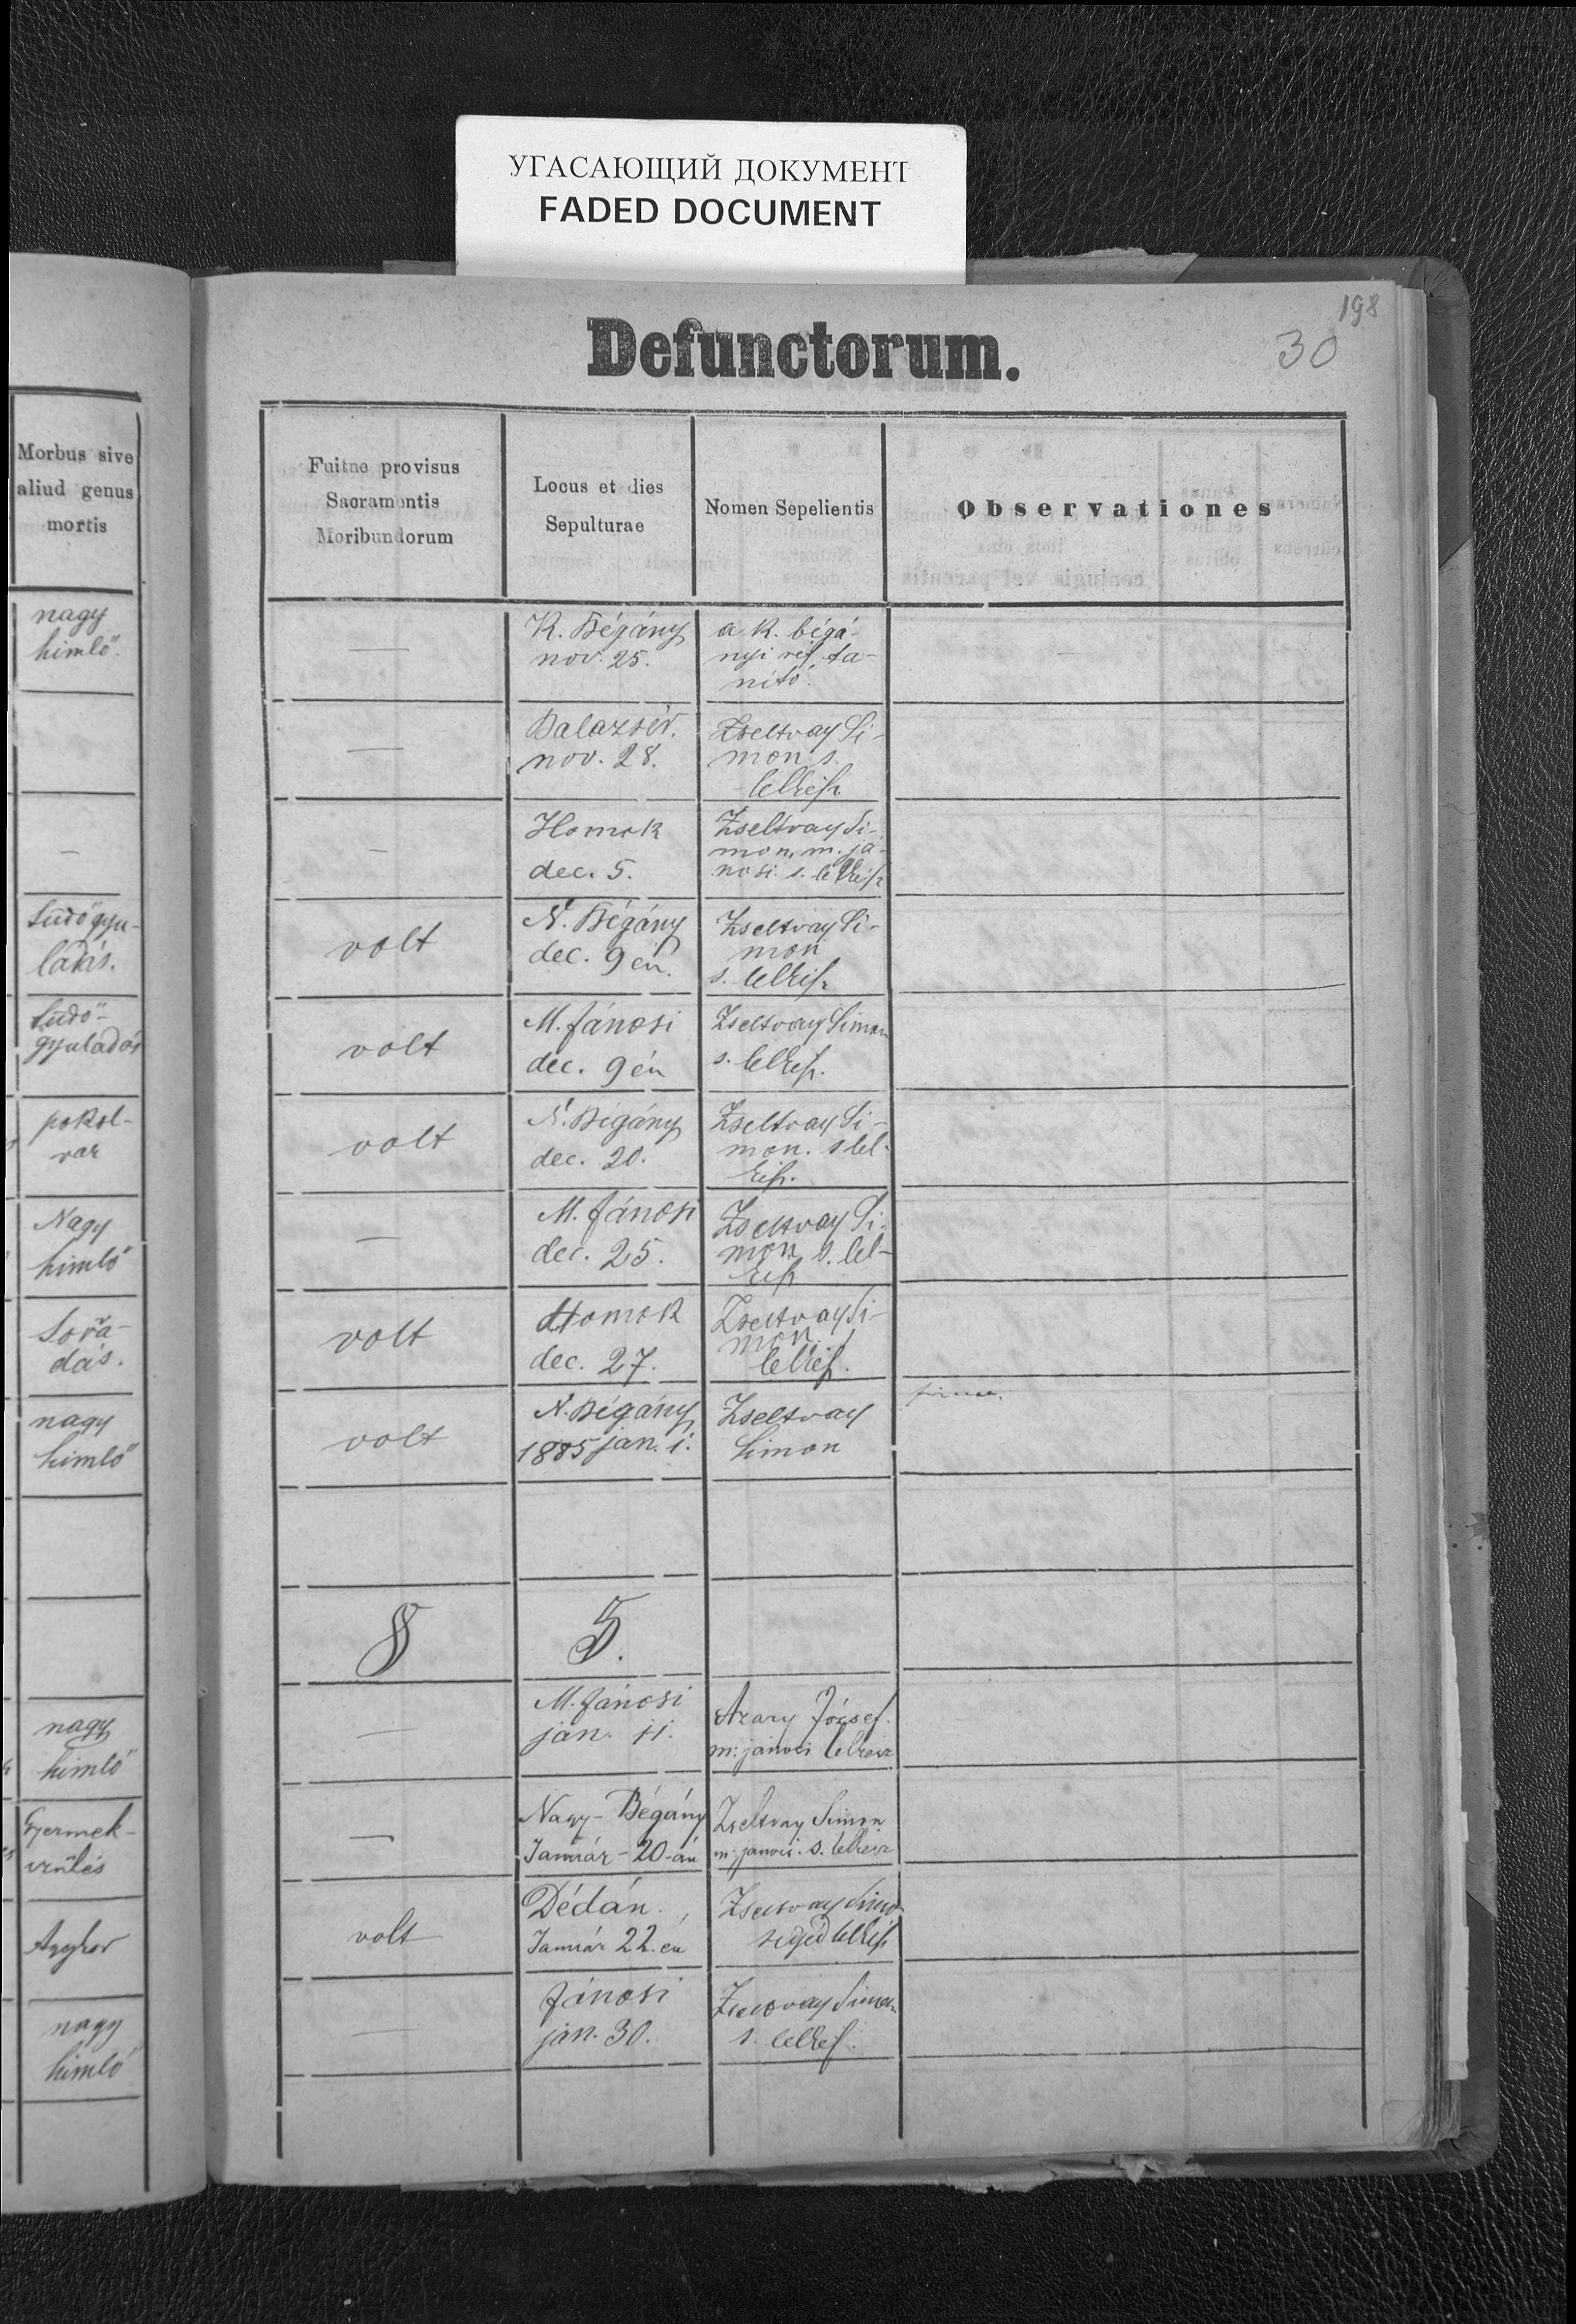 УГАСАЮЩИЙ ДОКУМЕНТ
FADED DOCUMENT
198
30
Defunctorum.
Morbus sive
aliud genus
mortis
Fuitne provisus
Sacramentis
Moribundorum
Locus et dies
Sepulturae
Nomen Sepelientis
Observationes
nagy
himlő.
—
K. Bégány
nov. 25.
a K. bégá-
nyi ref. ta-
nító.
—
—
Balazsér.
nov. 28.
Zseltvay Si-
mon s.
lelkész
—
—
Homok
dec. 5.
Zseltvay Si-
mon, m. já-
nosi s. lelkész
tüdőgyu-
ladás.
volt
N. Bégány
dec. 9 én.
Zseltvay Si-
mon
s. lelkész
tüdő-
gyuladás
volt
M. Jánosi
dec. 9 én
Zseltvay Simon
s. lelkész.
pokol-
var
volt
N. Bégány
dec. 20.
Zseltvay Si-
mon. s lel-
kész.
Nagy
himlő
—
M. Jánosi
dec. 25.
Zseltvay Si-
mon s. lel-
kész
Sorva-
dás.
volt
Homok
dec. 27.
Zseltvay Si-
mon s
lelkész.
nagy
himlő
volt
N. Bégány
1885 jan. 1.
Zseltvay
Simon
8
5.
nagy
himlő
—
M. Jánosi
jan. 11.
Azary József.
m: jánosi lelkész
Gyermek-
szülés
—
Nagy-Bégány
Január-20-án
Zseltvay Simon
m: jánosi. s. lelkész
Aggkor
volt
Dédán.
Január 22. én
Zseltvay Simon
segéd lelkész
nagy
himlő
—
Jánosi
jan. 30.
Zseltvay Simon
s. lelkész.